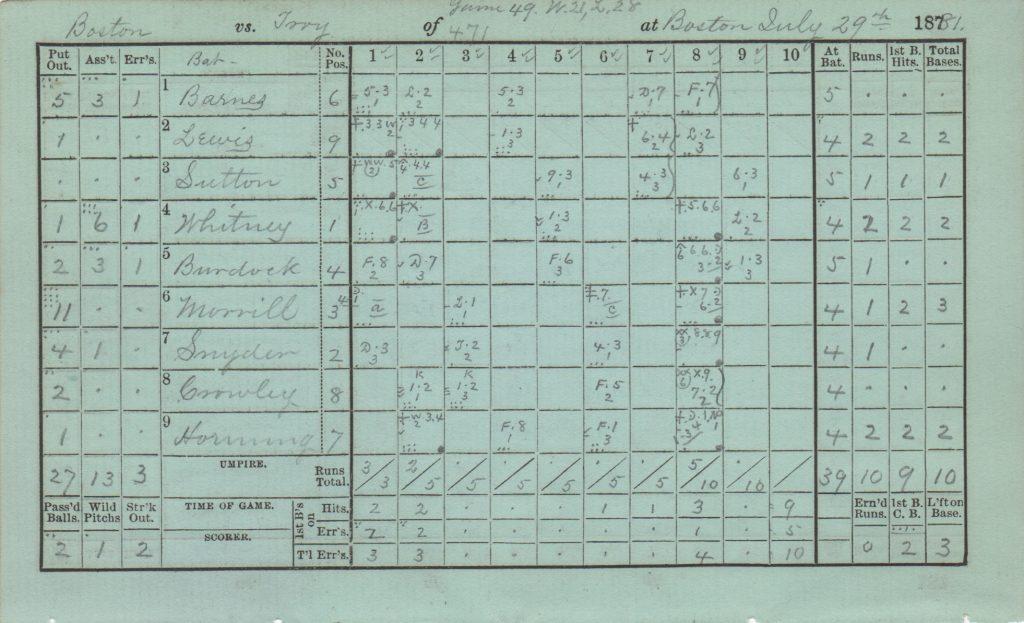 Game 49. W. 21, L. 28
Boston vs. Troy of 471 at Boston July 29th 1881.
Put Out. Ass't. Err's. Bat- No. Pos. 1 2 3 4 5 6 7 8 9 10 At Bat. Runs. 1st B. Hits. Total Bases.
5 3 1 1 Barnes 6 5-3 1 L-2 2 5-3 2 D-7 1 F-7 1 5 · · ·
1 · · 2 Lewis 9 1-3 3 6-4 2 L-2 3 4 2 2 2
· · · 3 Sutton 5 C 9-3 1 4-3 3 6-3 1 5 1 1 1
1 6 1 4 Whitney 1 B 1-3 2 5.6.6 L-2 2 4 2 2 2
2 3 1 5 Burdock 4 F-8 2 D-7 3 F-6 3 1-3 3 5 1 · ·
11 · · 6 Morrill 3 a L-1 1 C 4 1 2 3
4 1 · 7 Snyder 2 D-3 3 J-2 2 4-3 1 4 1 · ·
2 · · 8 Crowley 8 K 1-2 1 K 1-2 3 F-5 2 7-2 2 4 · · ·
1 · · 9 Hornung 7 F-8 1 F-1 3 4 2 2 2
27 13 3 UMPIRE. Runs Total. 3/3 2/5 ·/5 ·/5 ·/5 ·/5 ·/5 5/10 ·/10 / 39 10 9 10
Pass'd Balls. Wild Pitchs Str'k Out. TIME OF GAME. 1st B's on Hits. 2 2 · · · 1 1 3 · 9 Ern'd Runs. 1st B. C. B. L'ft on Base.
SCORER. Err's. 2 2 · · · · · 1 · 5
2 1 2 T'l Err's. 3 3 · · · · · 4 · 10 0 2 3